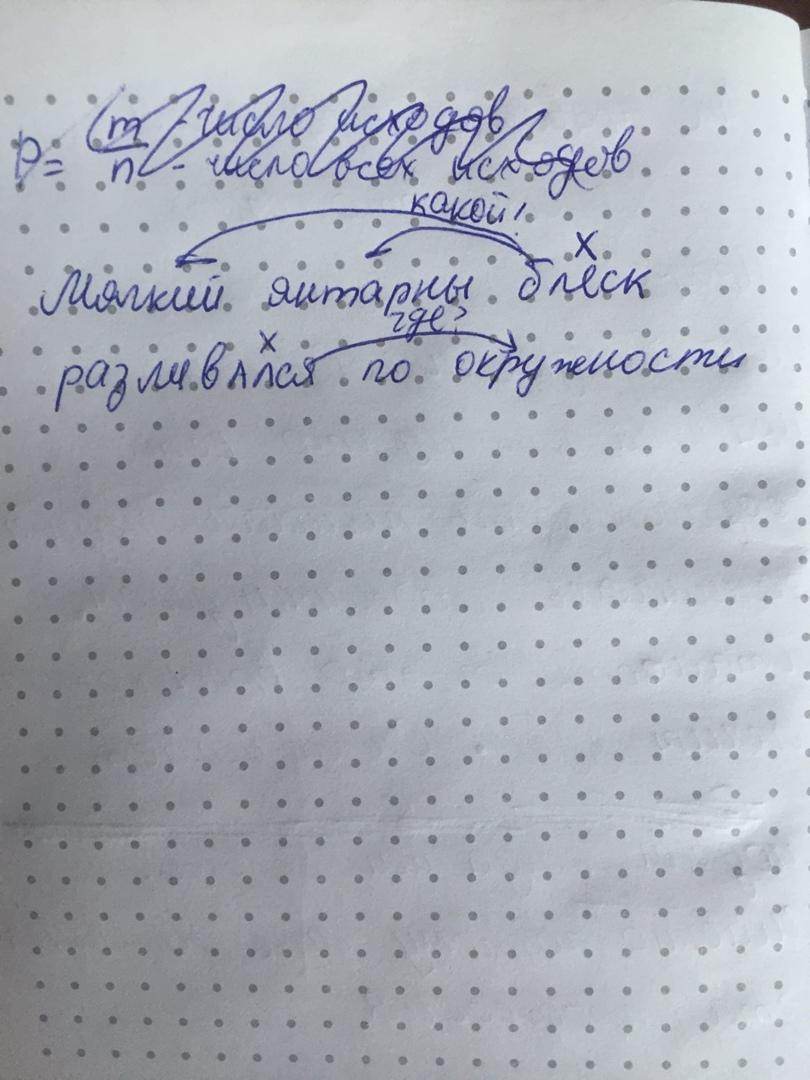 P = m - число исходов
n - число всех исходов
какой?
Мягкий янтарны блеск
где?
разливался по окружности